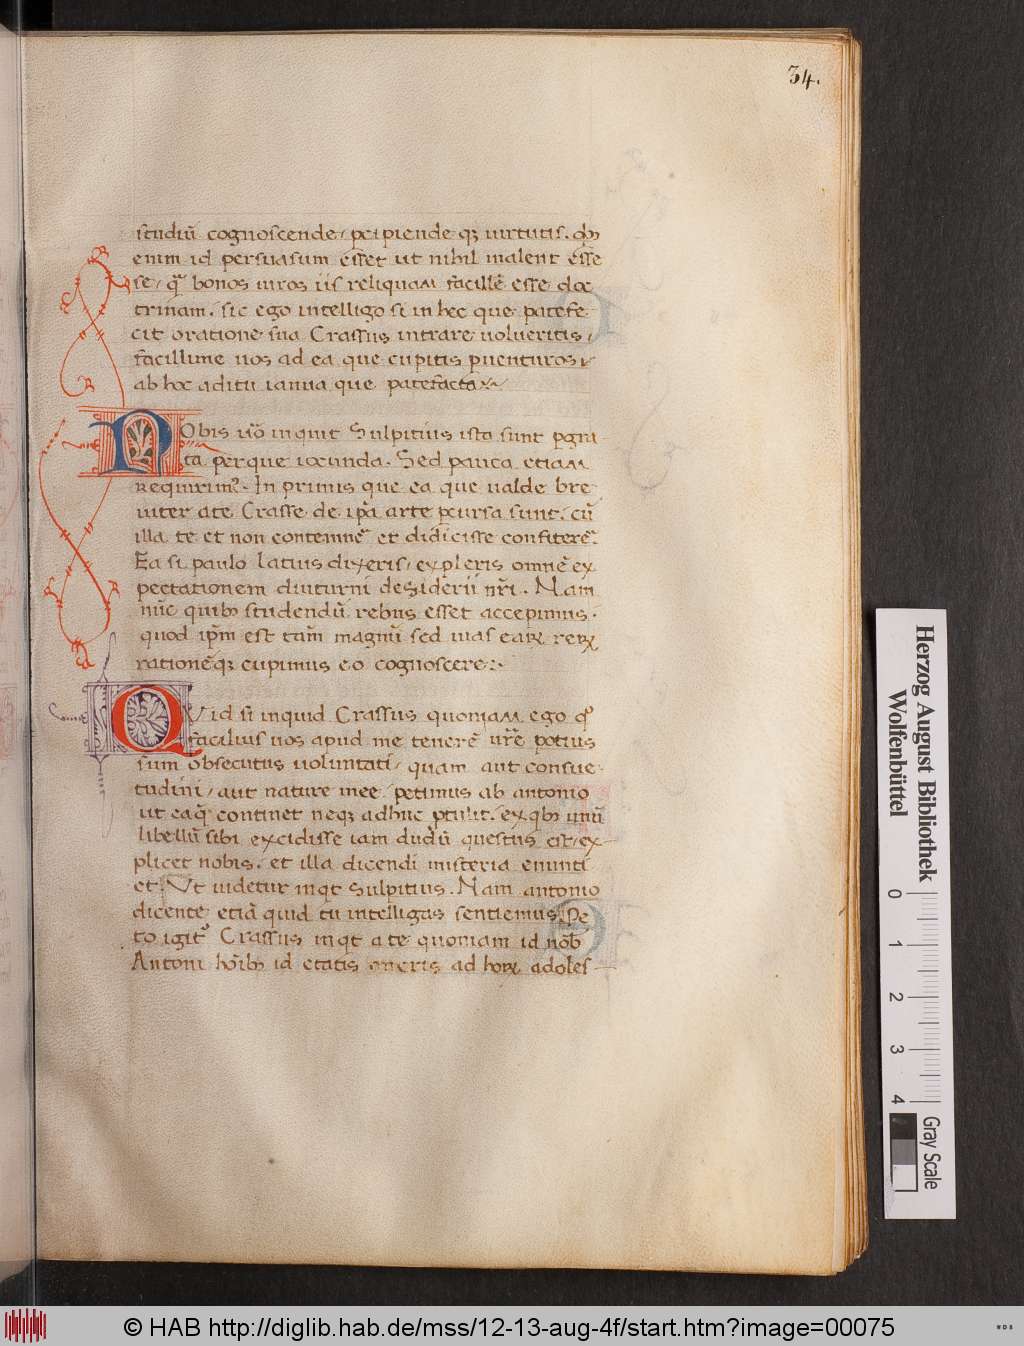 34.
studiũ cognoscende, pcipiende qȝ uirtutis. qbȝ
enim id persuasum esset ut nihil malent esse
se, q̃ bonos uiros iis reliquam facillẽ esse doc
trinam. sic ego intelligo si in hec que patefe
cit oratione sua Crassus intrare uolueritis,
facillime uos ad ea que cupitis puenturos,
ab hoc aditu ianua que patefacta.
Nobis uõ inquit Sulpitius ista sunt pgra
ta perque iocunda. Sed pauca etiam
requirimꝰ. In primis que ea que ualde bre
uiter a te Crasse de ip̃a arte pcursa sunt. cũ
illa te et non contemnẽ et didicisse confiterẽ.
Ea si paulo latius dixeris, expleris omnẽ ex
pectationem diuturni desiderii nr̃i. Nam
nũc quibȝ studendũ rebus esset accepimus.
quod ip̃m est tam̃ magnũ sed uias earꝝ rerꝝ
rationẽqȝ cupimus eo cognoscere.
QVid si inquid Crassus quoniam ego qꝰ
facilius uos apud me tenerẽ ur̃e potius
sum obsecutus uoluntati, quam aut consue
tudini, aut nature mee. petimus ab antonio
ut ea q̃ continet neqȝ adhuc ptulit. ex qbȝ unũ
libellũ sibi excidisse iam dudũ questus est, ex
plicet nobis. et illa dicendi misteria enunti
et. Vt uidetur inqt Sulpitius. Nam antonio
dicente etiã quid tu intelligas sentiemus. Pe
to igitꝰ Crassus inqt a te quoniam id nob̃
Antoni hõibȝ id etatis oneris ad horꝝ adoles
Herzog August Bibliothek
Wolfenbüttel
0 1 2 3 4
Gray Scale
© HAB http://diglib.hab.de/mss/12-13-aug-4f/start.htm?image=00075